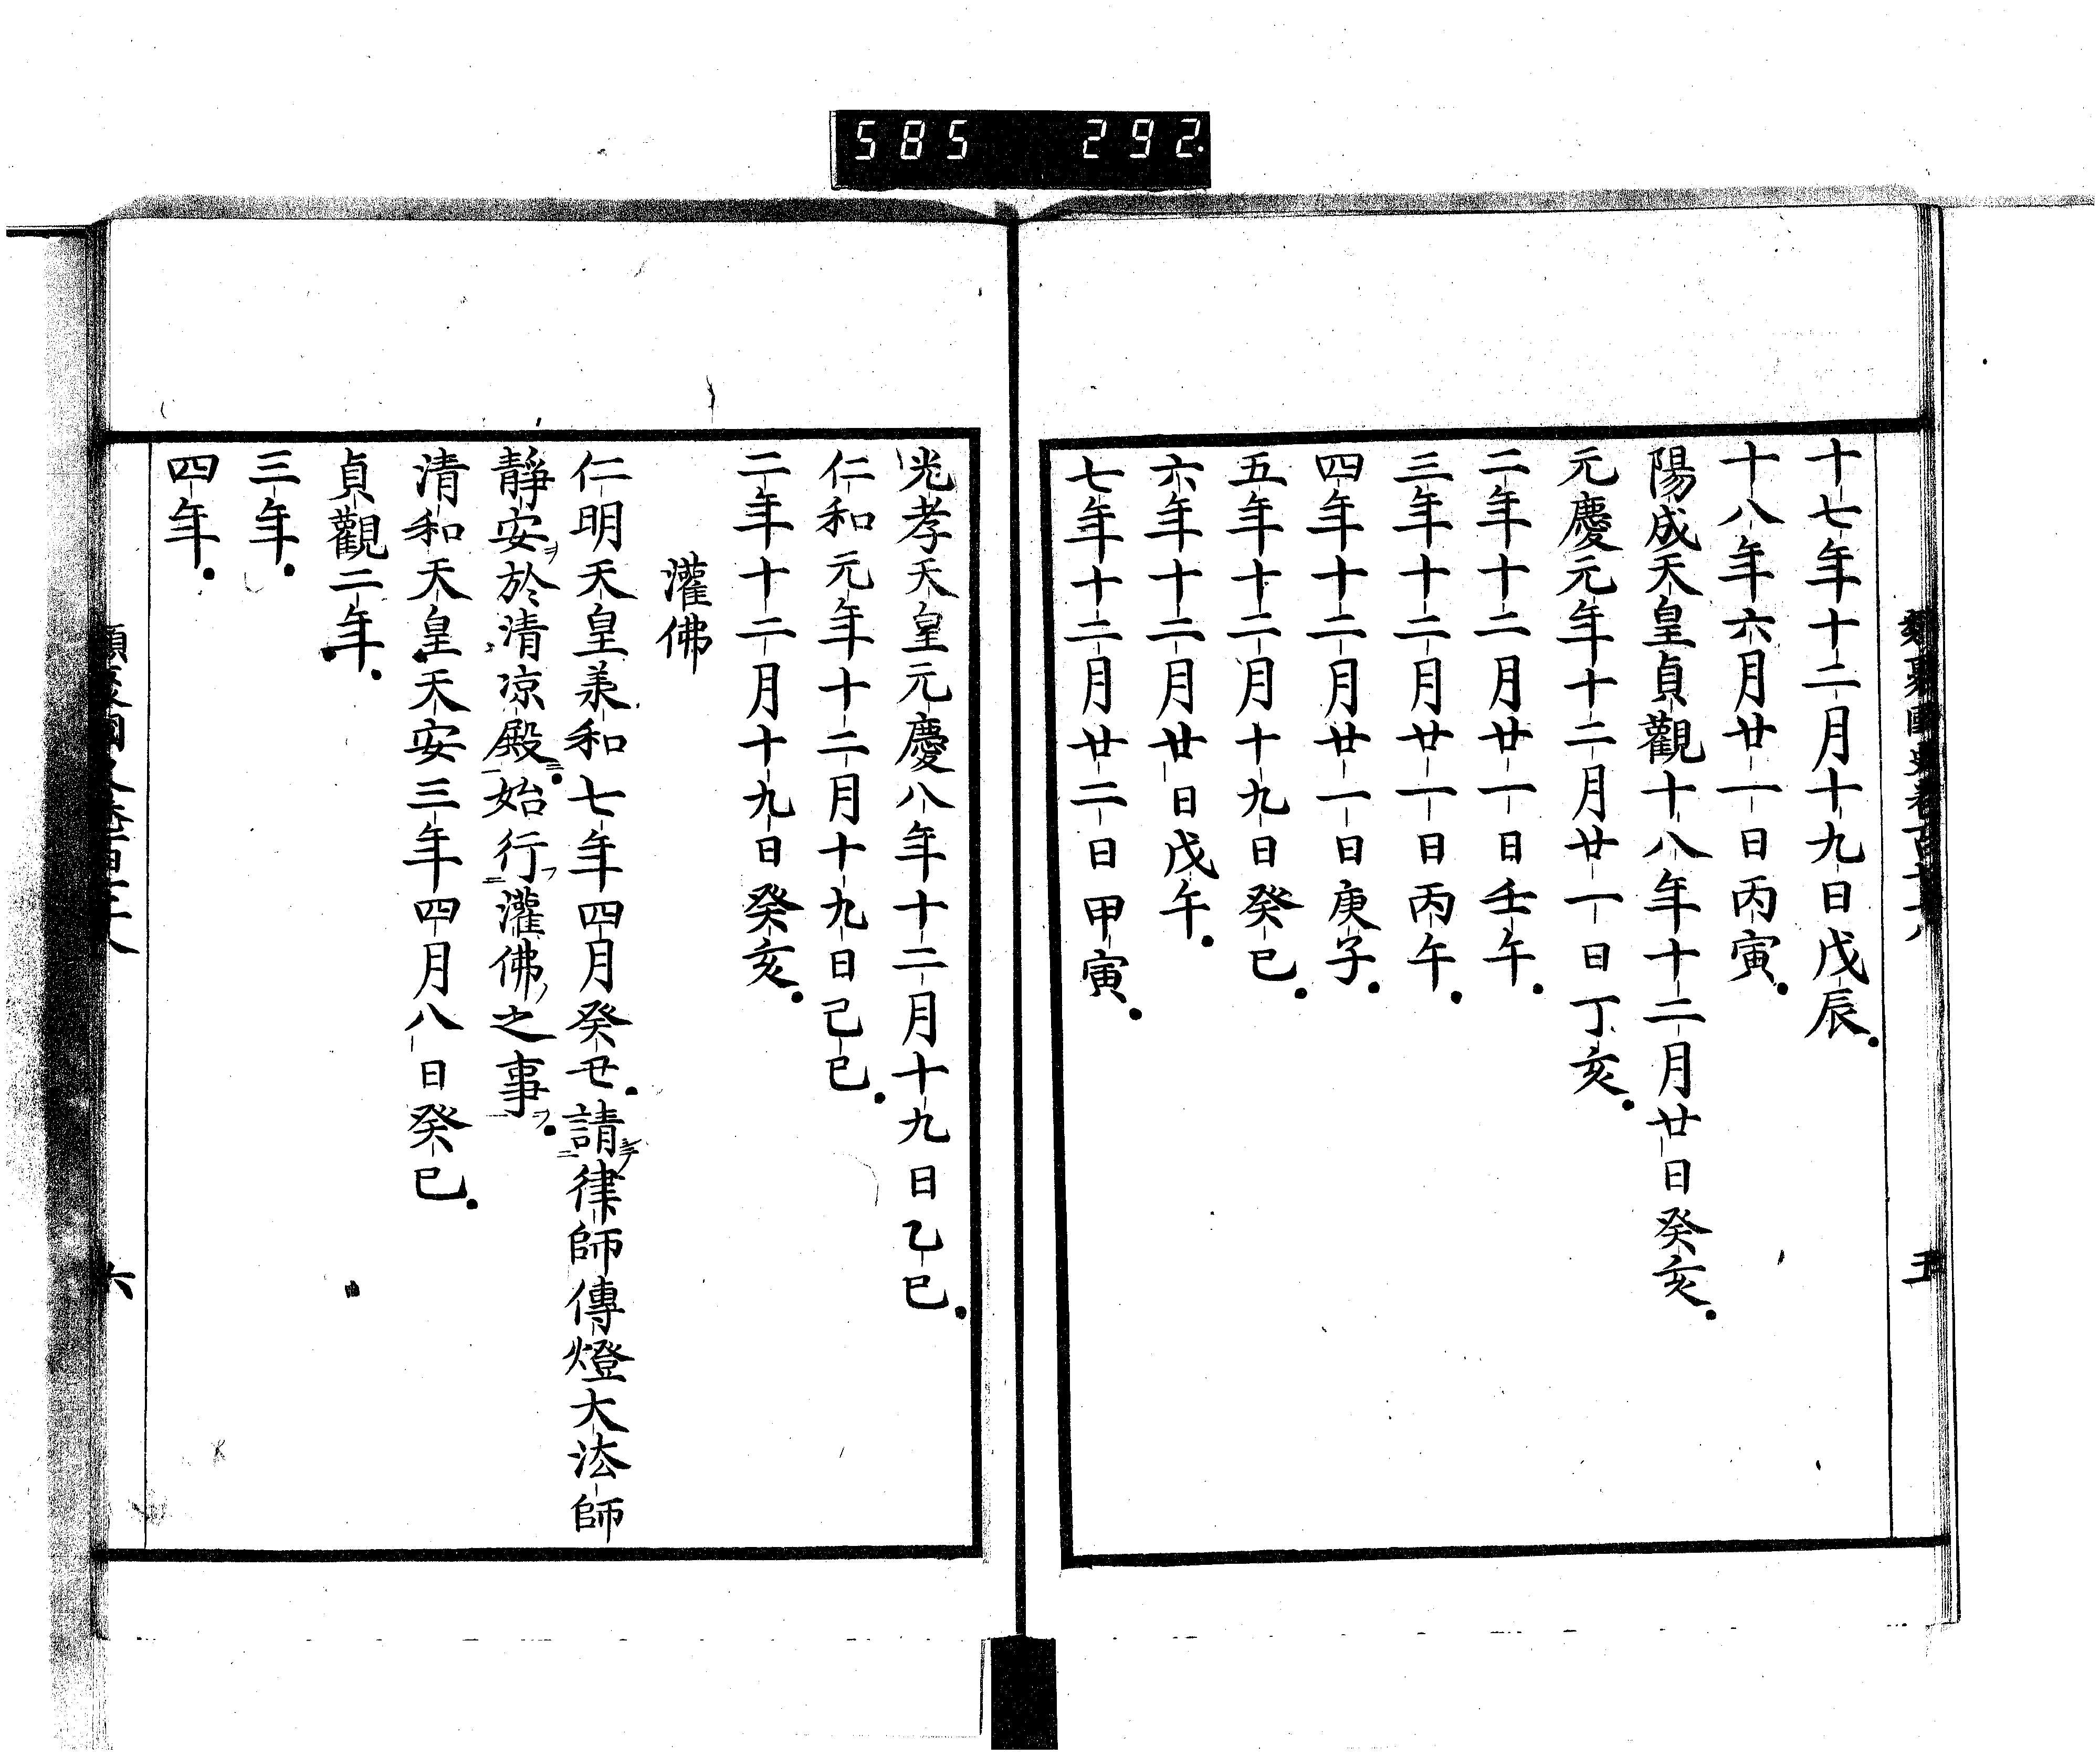 585 292
十七年十二月十九日戊辰
十八年六月廿一日丙寅
陽成天皇貞觀十八年十二月廿日癸亥
元慶元年十二月廿一日丁亥
二年十二月廿一日壬午
三年十二月廿一日丙午
四年十二月廿一日庚子
五年十二月十九日癸巳
六年十二月廿日戊午
七年十二月廿二日甲寅
光孝天皇元慶八年十二月十九日乙巳
仁和元年十二月十九日己巳
二年十二月十九日癸亥
灌佛
仁明天皇羕和七年四月癸丑請律師傳燈大法師
靜安於清凉殿始行灌佛之事
清和天皇天安三年四月八日癸巳
貞觀二年
三年
四年
六